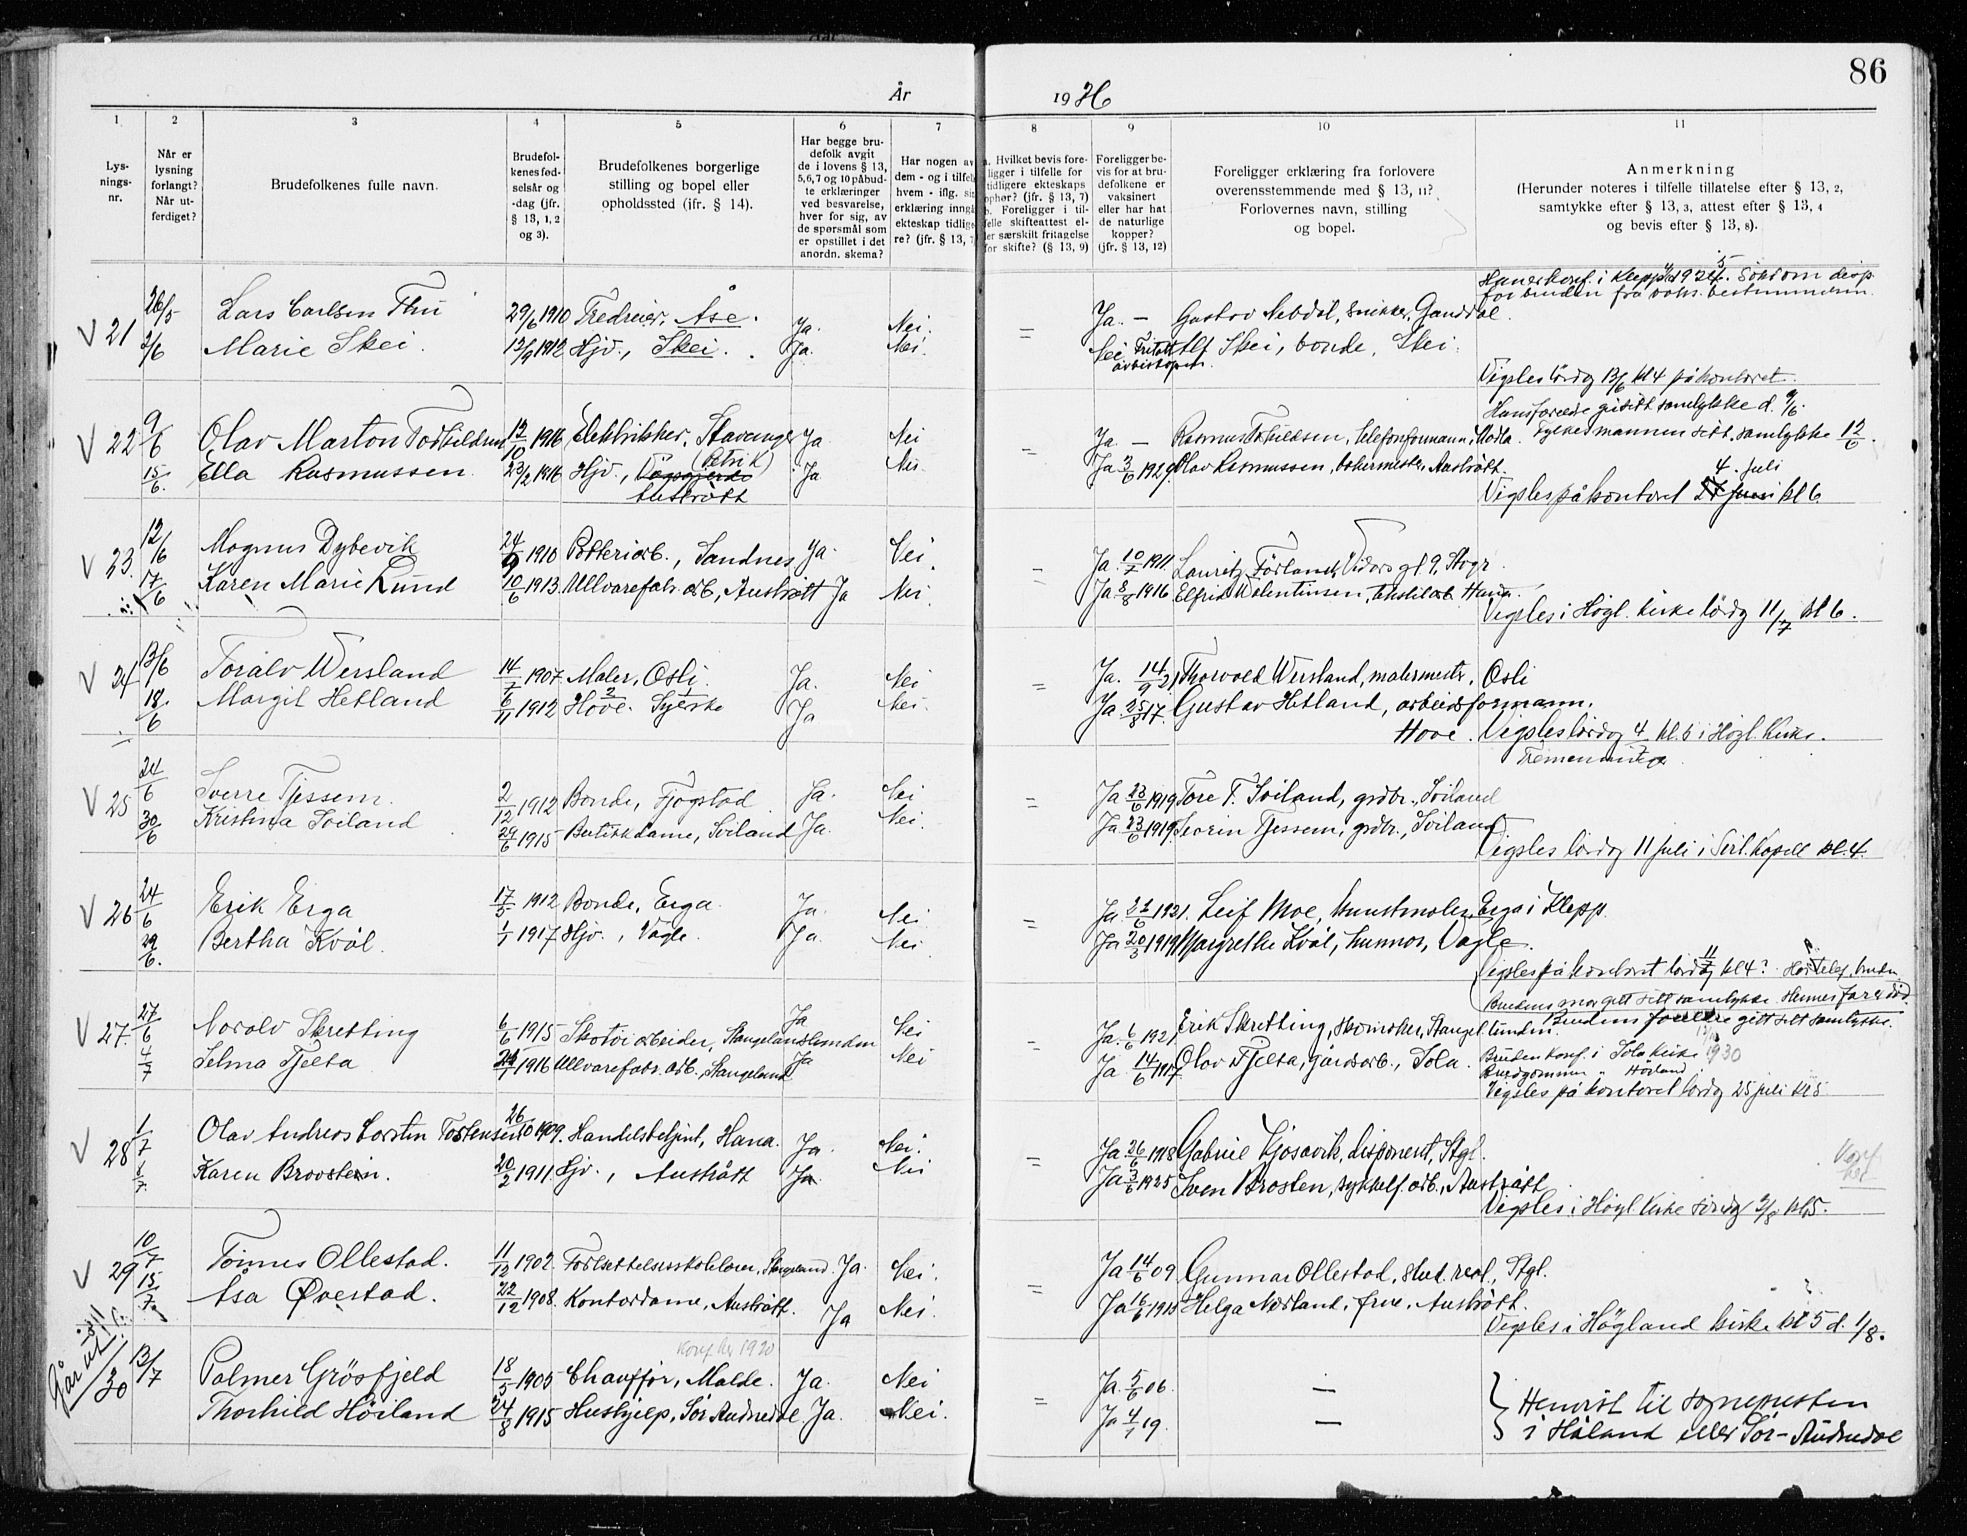 86
År 1936
1 2 3 4 5 6 7 8 9 10 11
Lys-
nings-
nr.
Når er
lysning
forlangt?
Når ut-
ferdiget?
Brudefolkenes fulle navn.
Brudefol-
kenes fød-
selsår og
-dag (jfr.
§ 13, 1, 2
og 3).
Brudefolkenes borgerlige
stilling og bopel eller
opholdssted (ifr. § 14).
Har begge bru-
defolk avgit
de i lovens § 13,
5,6,7 og 10 påbud-
te erklæringer
ved besvarelse,
hver for sig, av
de spørsmål som
er opstillet i det
anordn. skema?
Har nogen av
dem - og i tilfel
hvem - iflg. sin
erklæring inngå
ekteskap tidlige
re? (jfr. § 13, 7
a. Hvilket bevis fore-
ligger i tilfelle for
tidligere ekteskaps
ophør? (§ 13, 7)
b. Foreligger i til-
felle skifteattest el-
ler særskilt fritagelse
for skifte? (§ 13, 9)
Foreligger be-
vis for at bru-
defolkene er
vaksinert
eller har hat
de naturlige
kopper?
(jfr. § 13, 12)
Foreligger erklæring fra forlovere
overensstemmende med § 13, 11?
Forlovernes navn, stilling
og bopel.
Anmerkning
(Herunder noteres i tilfelle tillatelse efter § 13, 2,
samtykke efter § 13, 3, attest efter § 13, 4
og bevis efter § 13, 8).
V 21 26/5 Lars Carlsen Thu 29/6 1910 Tredreier, Åse. Ja. Nei. = Ja. — Gustav Nebdal, snikker, Ganddal.
2/6 Marie Skei. 12/9 1912 Hjv., Skei. Ja. Nei. Nei. Alf Skei, bonde, Skei.
Vigsles lørdag 13/6 kl 4 på kontoret.
V 22 9/6 Olav Marton Torkildsen 12/10 1916 Elektriker, Stavanger Ja Nei = Ja. — Rasmus Torkildsen, telefonformann, Madla. Fylkesmannen gitt samtykke 12/6.
15/6. Ella Rasmussen 23/2 1916 Hjv., Austrått Ja Nei. Ja 3/6 1929. Olav Rasmussen, Austrått.
4. juli
Vigsles på kontoret kl 6
V 23. 12/6 Magnus Dybevik 24/9 1910 Potteriarb., Sandnes Ja. Nei = Ja. 10/7 1911 Lauritz Förland, Vidars gt 9, Stvgr.
17/6 Karen Marie Lund 10/6 1913. Ullvarefabr. arb., Austrått Ja Nei. Ja 8/8 1916 Elfrid Valentinsen, tekstilarb. Hana.
Vigsles i Høgl. kirke lørdag 11/7 kl 6.
V 24 13/6 Toralv Wersland 14/7 1907. Maler, Osli. Ja. Nei = Ja. 14/9 21. Thorvald Wersland, malermestr. Osli
18/6 Margit Hetland 6/11 1912 Hove. Syerske Ja Nei. Ja 25/8 17. Gustav Hetland, arbeidsformann.
Hove. Vigsles lørdag 4/7 kl. 6 i Høgl. kirke.
V 25 24/6 Sverre Tjessem. 2/12 1912 Bonde, Fjogstad. Ja. Nei = Ja 23/6 1919 Tore T. Soiland, grdbr., Soiland
30/6 Kristina Soiland 29/6 1915 Butikkdame, Soiland Ja. Nei. Ja. 23/6 1919. Severin Tjessem, grdbr., Soiland
Vigsles lørdag 11 juli i Svil. kapell kl. 4.
V 26 24/6 Erik Erga 17/5 1912 Bonde, Erga. Ja. Nei = Ja. 22/6 1921. Leif Moe, kunstmaler, Erga i Klepp.
29/6. Bertha Kvål. 1/1 1917 Hjv., Vagle. Ja. Nei Ja 20/5 1919 Margrethe Kvål, husmor, Vagle.
Vigsles på kontoret lørdag 11/7 kl 4?
Brudens mor gitt sitt samtykke Hennes far er død.
V 27. 27/6 Norolv Skretting 6/6 1915 Skotøiarbeider, Stangelandslunden Ja Nei Ja. 6/6 1921 Erik Skretting, Stangel.lunden. Brudens foreldre gitt sitt samtykke.
4/7 Selma Tjelta 24/7 1916 Ullvarefabr. arb., Stangeland Ja Nei Ja 14/6 1917 Olav Tjelta, gårdsarb., Sola. Bruden konf. i Sola kirke 1930
Brudgommen " Høiland
Vigsles på kontoret lørdag 25 juli kl 5
V 28 1/7 Olav Andreas Torstensen 26/10 1909. Handelsbetjent, Hana. Ja. Nei. = Ja 26/6 1918 Gabriel Kjosavik, disponent, Stgl.
Karen Brovstein. 20/2 1911. Hjv., Austrått Ja Nei Ja 3/6 1925 Sven Brosten, sykkelf. arb., Austrått. Konf.
her
Vigsles i Høgl. kirke kl 5.
V 29 10/7 Tønnes Ollestad. 11/12 1902. Fortsettelsesskolelærer, Stangeland. Ja. Nei. = Ja 14/6 09 Gunnar Ollestad, stud. real., Stgl.
15/7. Åsa Øvestad. 22/12 1908. Kontordame, Austrått. Ja Nei. Ja 16/6 1915 Helga Nærland, frue, Austrått.
Vigsles i Høgland kirke kl 5 d. 1/8.
konf. her 1920
Går ut! 30 13/7 Palmer Grösfjeld 18/5 1905 Chauffør, Malde. Ja. Nei = Ja. 5/6 06. —
Thorhild Höiland 24/8 1915 Hushjelp, Sør Audnedal Ja. Nei. Ja 4/1 19. —
Henvist til sogneprsten
i Håland eller Sør-Audnedal